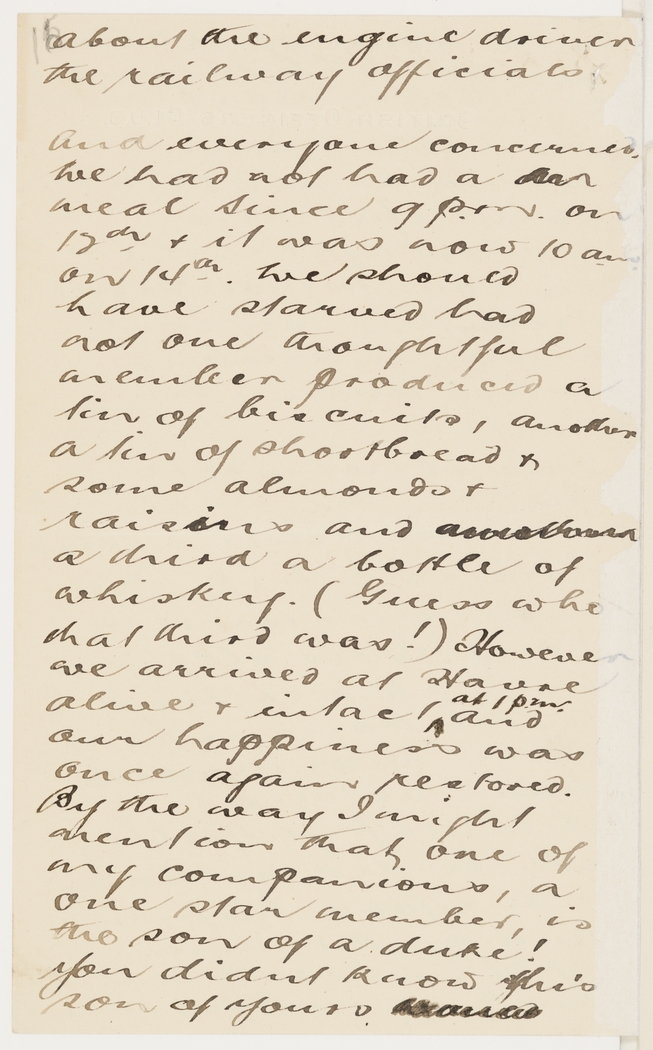 about the engine driver
the railway officials
and everyone concerned.
We had not had a
meal since 9 p.m. on
12th & it was now 10 am
on 14th. We should
have starved had
not one thoughtful
member produced a
tin of biscuits, another
a tin of shortbread &
some almonds &
raisins and
a third a bottle of
whiskey. (Guess who
that third was!) However
we arrived at Havre
alive & intact, at 1 pm. and
our happiness was
once again restored.
By the way I might
mention that, one of
my companions, a
one star member, is
the son of a duke!
You didnt know this
son of yours